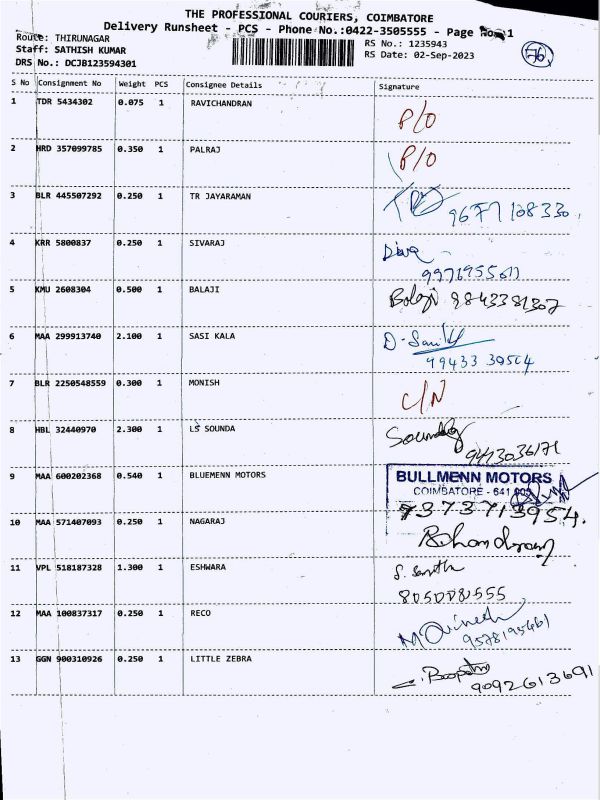 THE PROFESSIONAL COURIERS, COIMBATORE
Delivery Runsheet - PCS - Phone No.:0422-3505555 - Page No. 1
Route: THIRUNAGAR
RS No.: 1235943
76
Staff: SATHISH KUMAR
RS Date: 02-Sep-2023
DRS No.: DCJB123594301
S No Consignment No Weight PCS Consignee Details Signature
1 TDR 5434302 0.075 1 RAVICHANDRAN P/O
2 HRD 357099785 0.350 1 PALRAJ P/O
3 BLR 445507292 0.250 1 TR JAYARAMAN
9677108330
4 KRR 5800837 0.250 1 SIVARAJ
5 KMU 2608304 0.500 1 BALAJI Balaji 9843381307
6 MAA 299913740 2.100 1 SASI KALA
99433 30504
7 BLR 2250548559 0.300 1 MONISH C/N
8 HBL 32440970 2.300 1 LS SOUNDA
9 MAA 600202368 0.540 1 BLUEMENN MOTORS BULLMENN MOTORS
COIMBATORE - 641
7373713954.
10 MAA 571407093 0.250 1 NAGARAJ
11 VPL 518187328 1.300 1 ESHWARA
8050081555
12 MAA 100837317 0.250 1 RECO
9578195661
13 GGN 900310926 0.250 1 LITTLE ZEBRA
9092613691